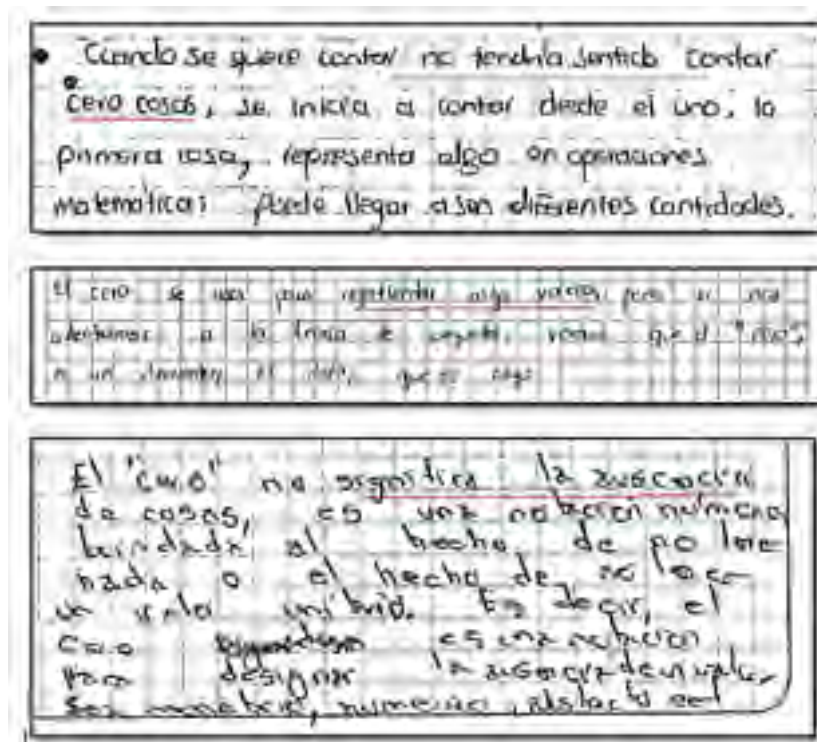 Cuando se quiere contar no tendría sentido contar
cero cosas, se inicia a contar desde el uno, la
primera cosa, representa algo en operaciones
matematicas puede llegar a ser diferentes cantidades.
El cero se usa para representar algo vacío, pero si nos
a la de conjuntos, vemos que el "cero",
es un elemento el que es algo
El "cero" no significa la ausencia
de cosas, es una notación numérica
brindada al hecho de no
nada o el hecho de no
un valor unitario. Es decir, el
cero es una notación
para designar la ausencia de un valor,
sea numérico, abstracto